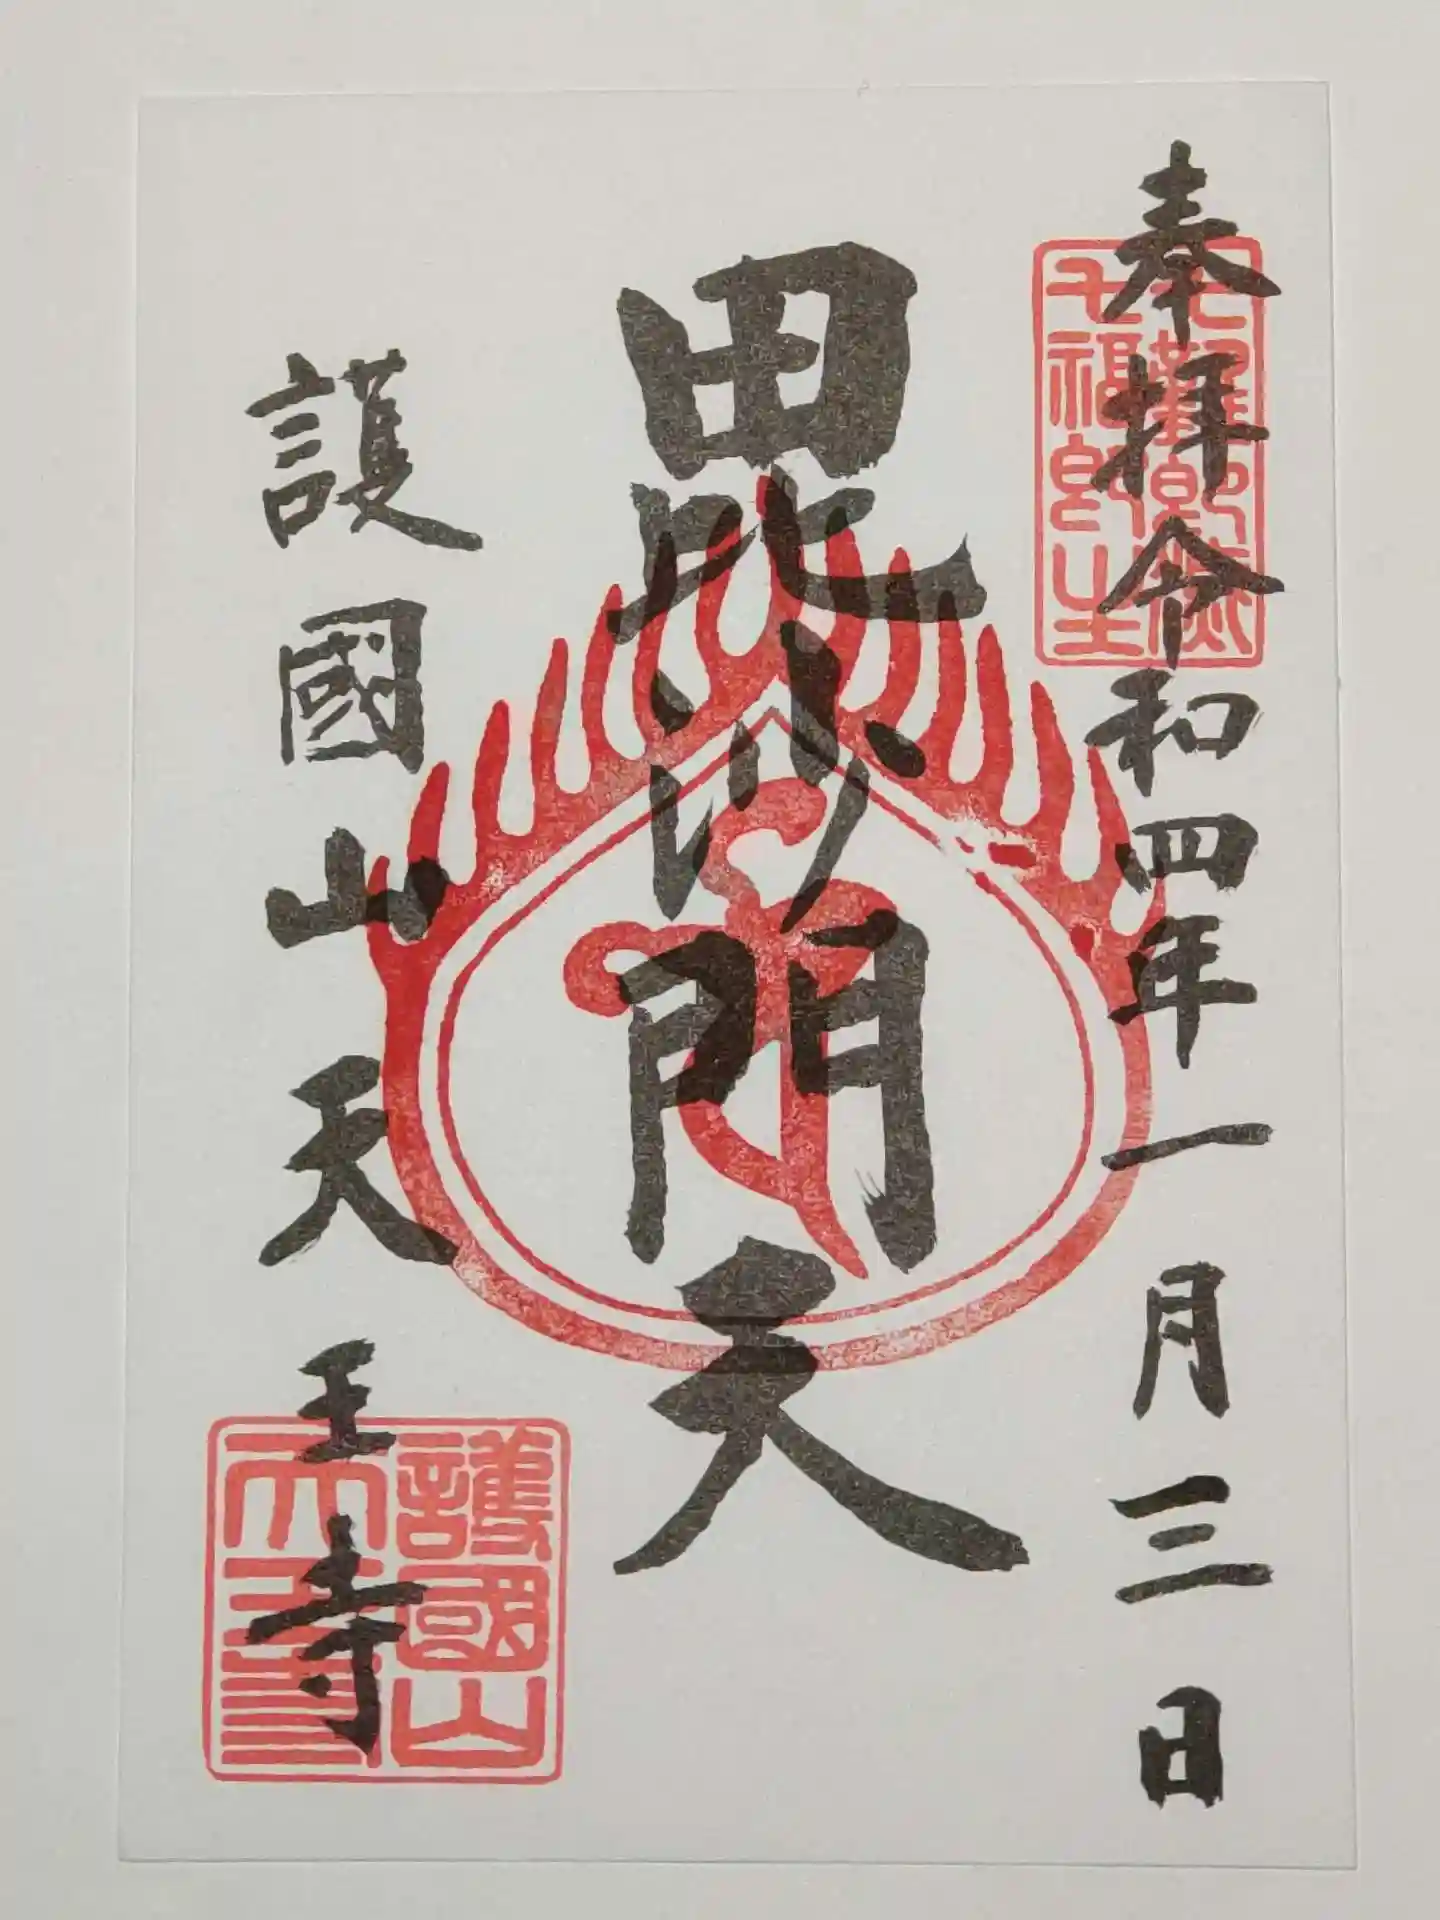 奉拝令和四年一月三日
毘沙門天
護國山天王寺
七難即滅
七福即生
護國山
天王寺